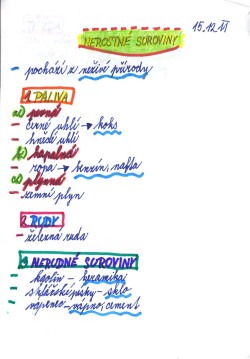 15.12.
NEROSTNÉ SUROVINY
– pochází z neživé přírody
1 PALIVA
a) pevná
– černé uhlí → koks
– hnědé uhlí
b) kapalná
– ropa → benzín, nafta
c) plynná
– zemní plyn
2 RUDY
– železná ruda
3 NERUDNÉ SUROVINY
– kaolín – keramika
– sklářské písky – sklo
– vápenec – vápno, cement